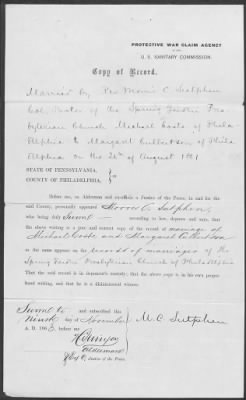 PROTECTIVE WAR CLAIM AGENCY
OF THE
U. S. SANITARY COMMISSION.
Copy of Record.
Married by Rev Morris C Sutphen
Pastor of the Spring Garden Pres-
byterian Church Michael Coste of Phila
delphia & Margaret Culbertson of Phila
delphia on the of August 1861
STATE OF PENNSYLVANIA,
COUNTY OF PHILADELPHIA,
Before me, an Alderman and ex-officio a Justice of the Peace, in and for the
said County, personally appeared Morris C. Sutphen,
who being by Sworn according to law, deposes and says, that
the above writing is a just and correct copy of the record of marriage of
Michael Coste and Margaret Culbertson
as the same appears on the records of marriages of the
Spring Garden Presbyterian Church of Philadelphia
That the said record is in deponent's custody; that the above copy is in his own proper
hand writing, and that he is a disinterested witness.
Sworn to and subscribed this
Ninth day of November
A. D. 186 before me
M. C. Sutphen
Alderman
Justice of the Peace.